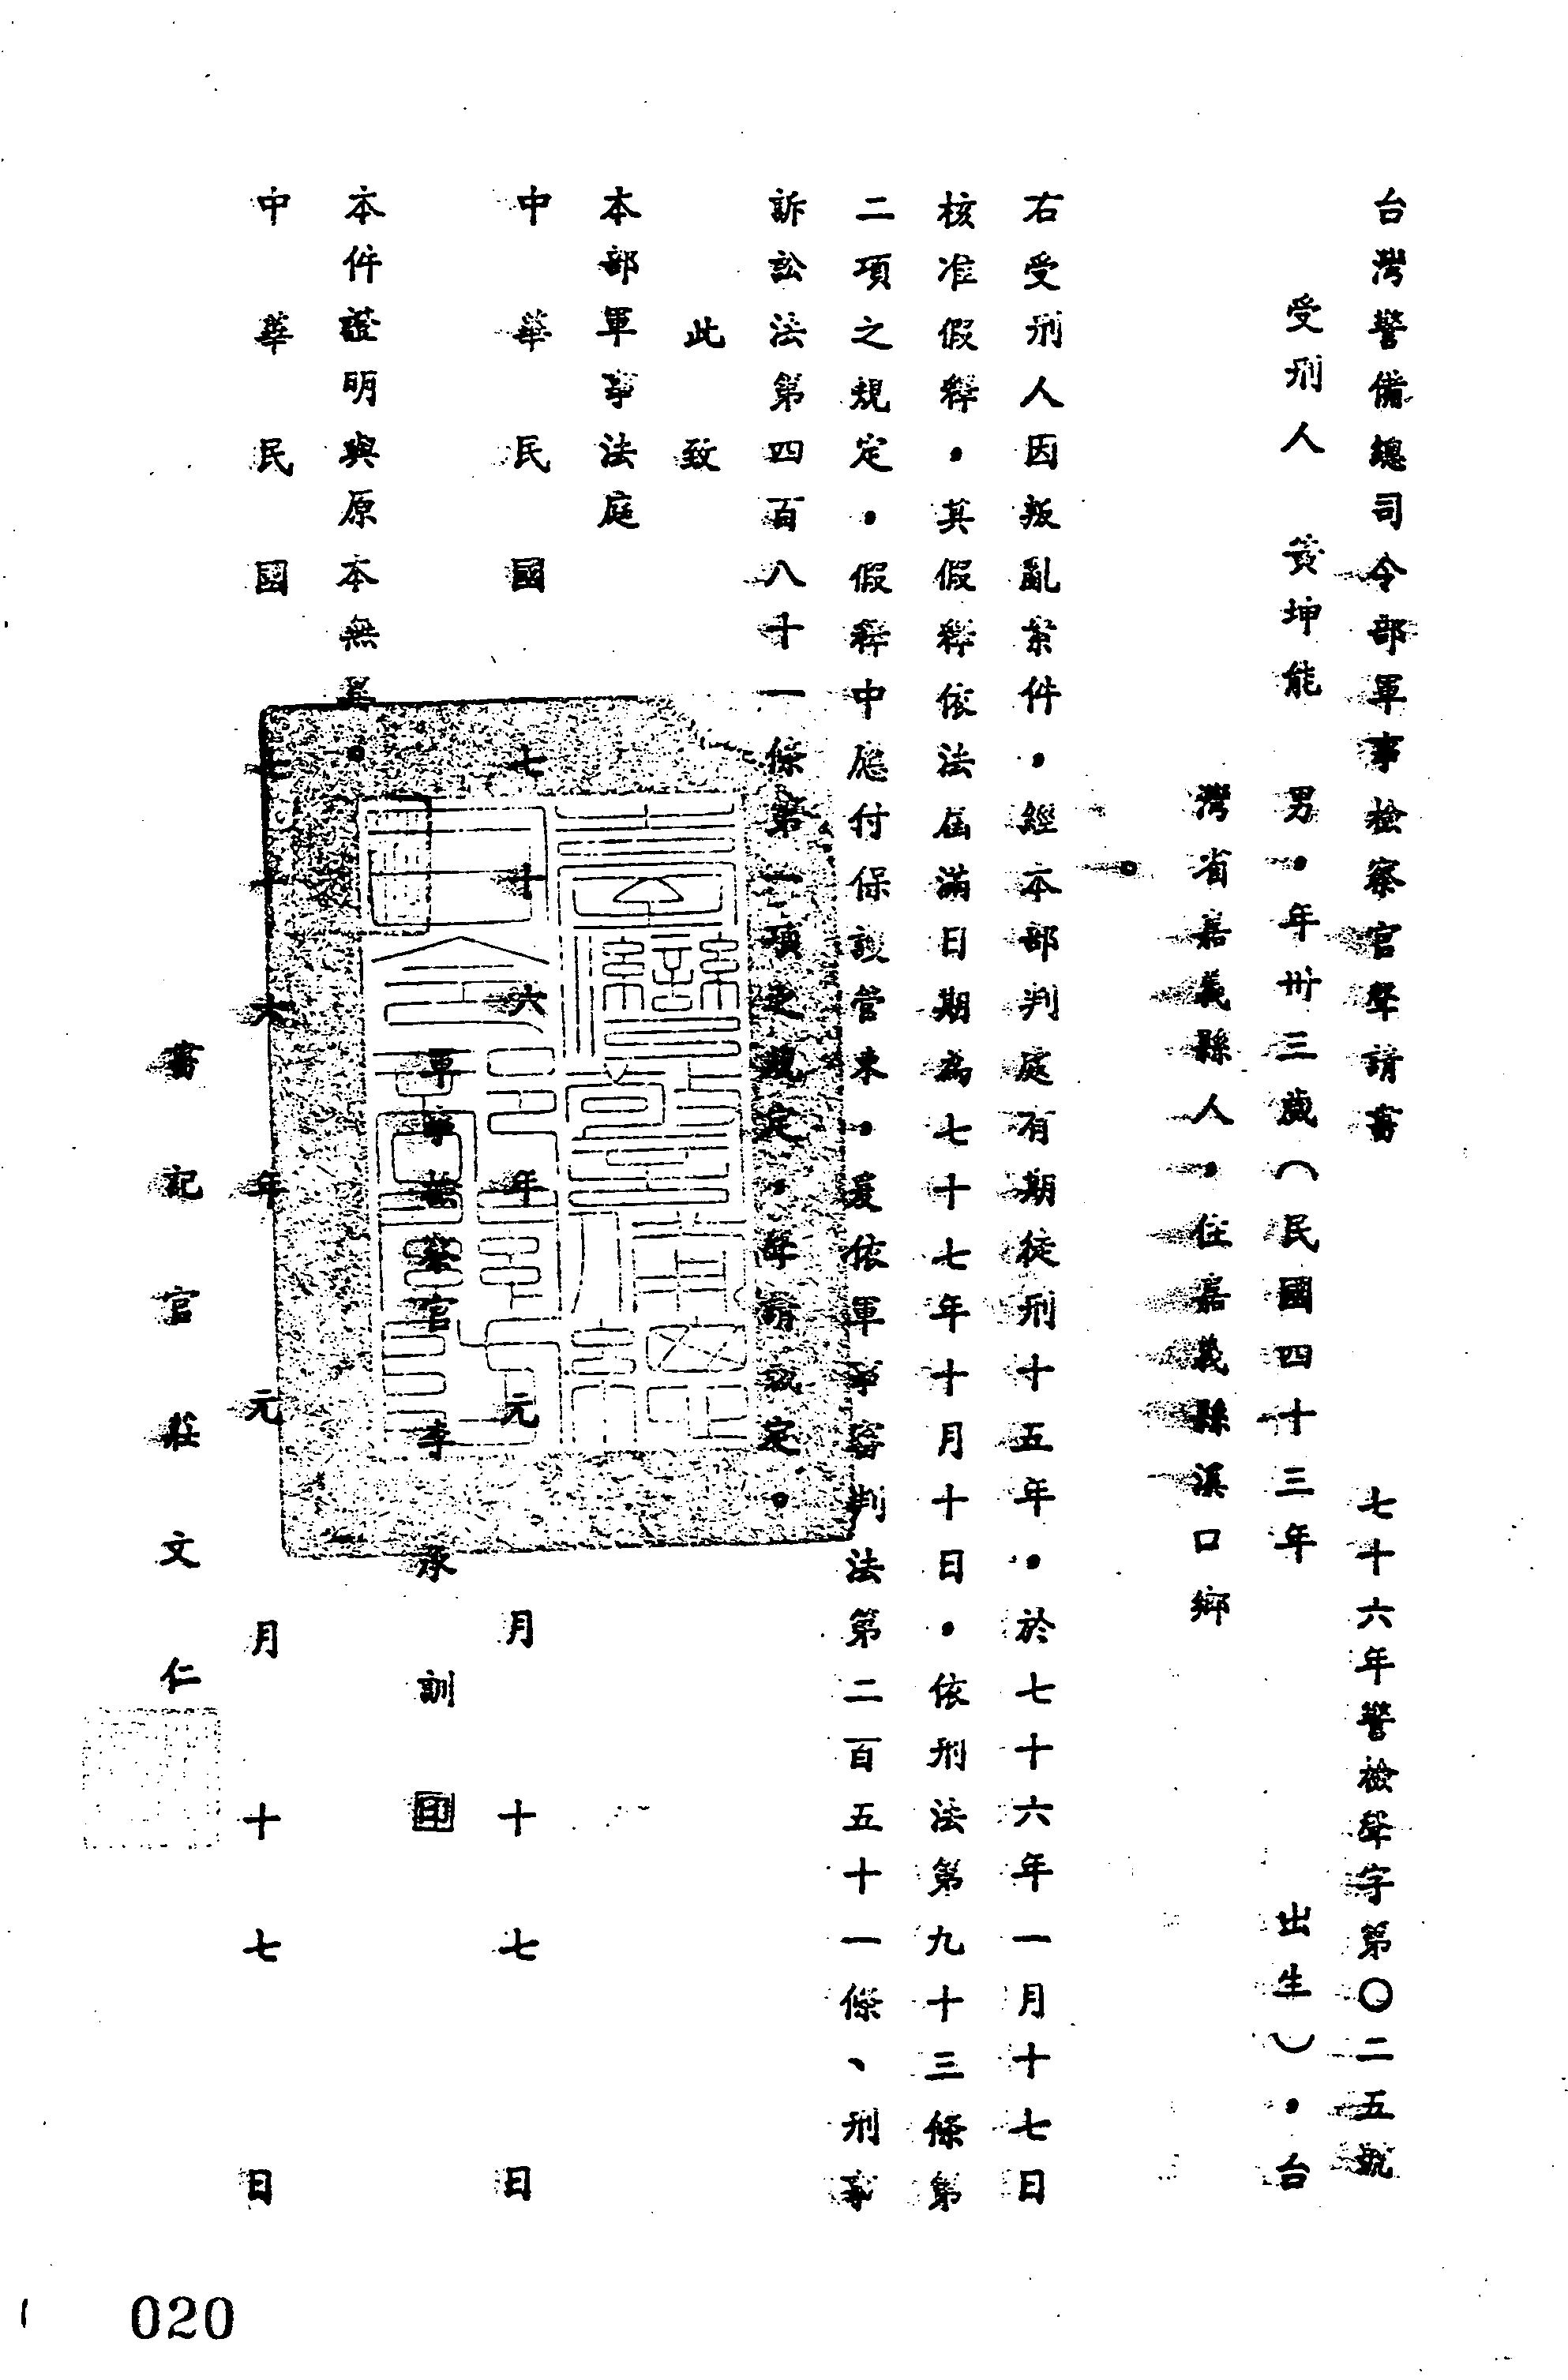 台灣警備總司令部軍事檢察官聲請書 七十六年警檢聲字第〇二五號
受刑人 黃坤能 男・年卅三歲(民國四十三年出生)・台
灣省嘉義縣人・住嘉義縣溪口鄉
。
右受刑人因叛亂案件・經本部判處有期徒刑十五年・於七十六年一月十七日
核准假釋・其假釋依法屆滿日期為七十七年十月十日・依刑法第九十三條第
二項之規定・假釋中應付保護管束・爰依軍事審判法第二百五十一條、刑事
訴訟法第四百八十一條第一項之規定・聲請裁定。
此致
本部軍事法庭
中華民國七十六年元月十七日
軍事檢察官 李承訓 印
本件證明與原本無異。
中華民國七十六年元月十七日
書記官 莊文仁
020